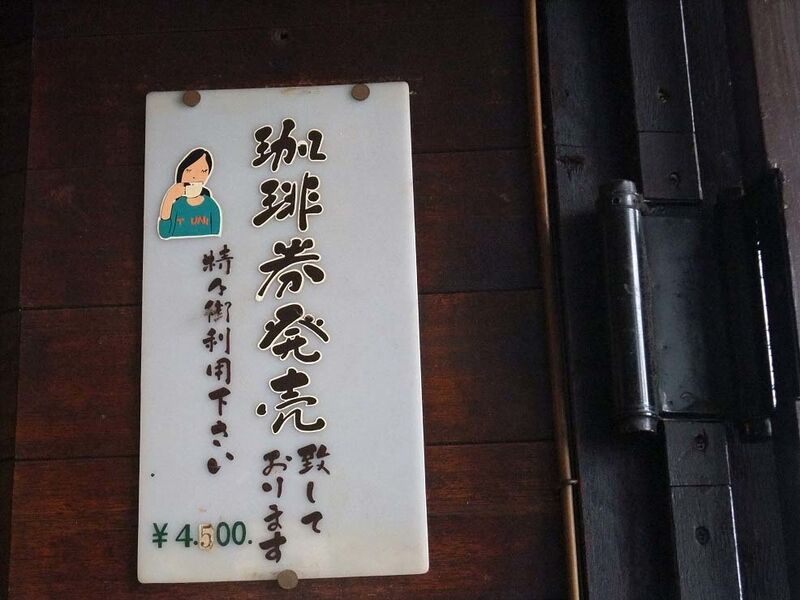 珈琲券発売
致して
おります
精々御利用下さい
¥4.500.